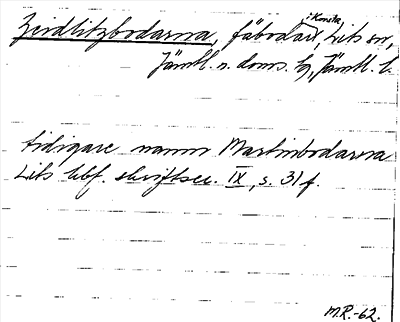 i Korsta
Zeidlitzbodarna, fäbodar, Lits sn,
Jämtl. n. doms. hg, Jämtl. l.
tidigare namn Martinbodarna
Lits hbf. skriftser. IX, s. 31 f.
M.R.-62.